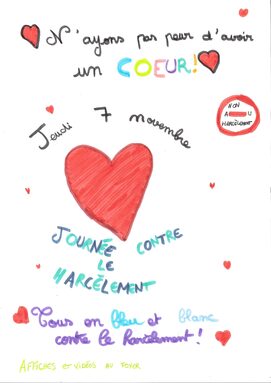 N'ayons pas peur d'avoir
un COEUR!
NON
AU
HARCÈLEMENT
Jeudi 7 novembre
JOURNÉE CONTRE
LE
HARCÈLEMENT
Tous en bleu et blanc
contre le harcèlement!
AFFICHES ET VIDÉOS AU FOYER